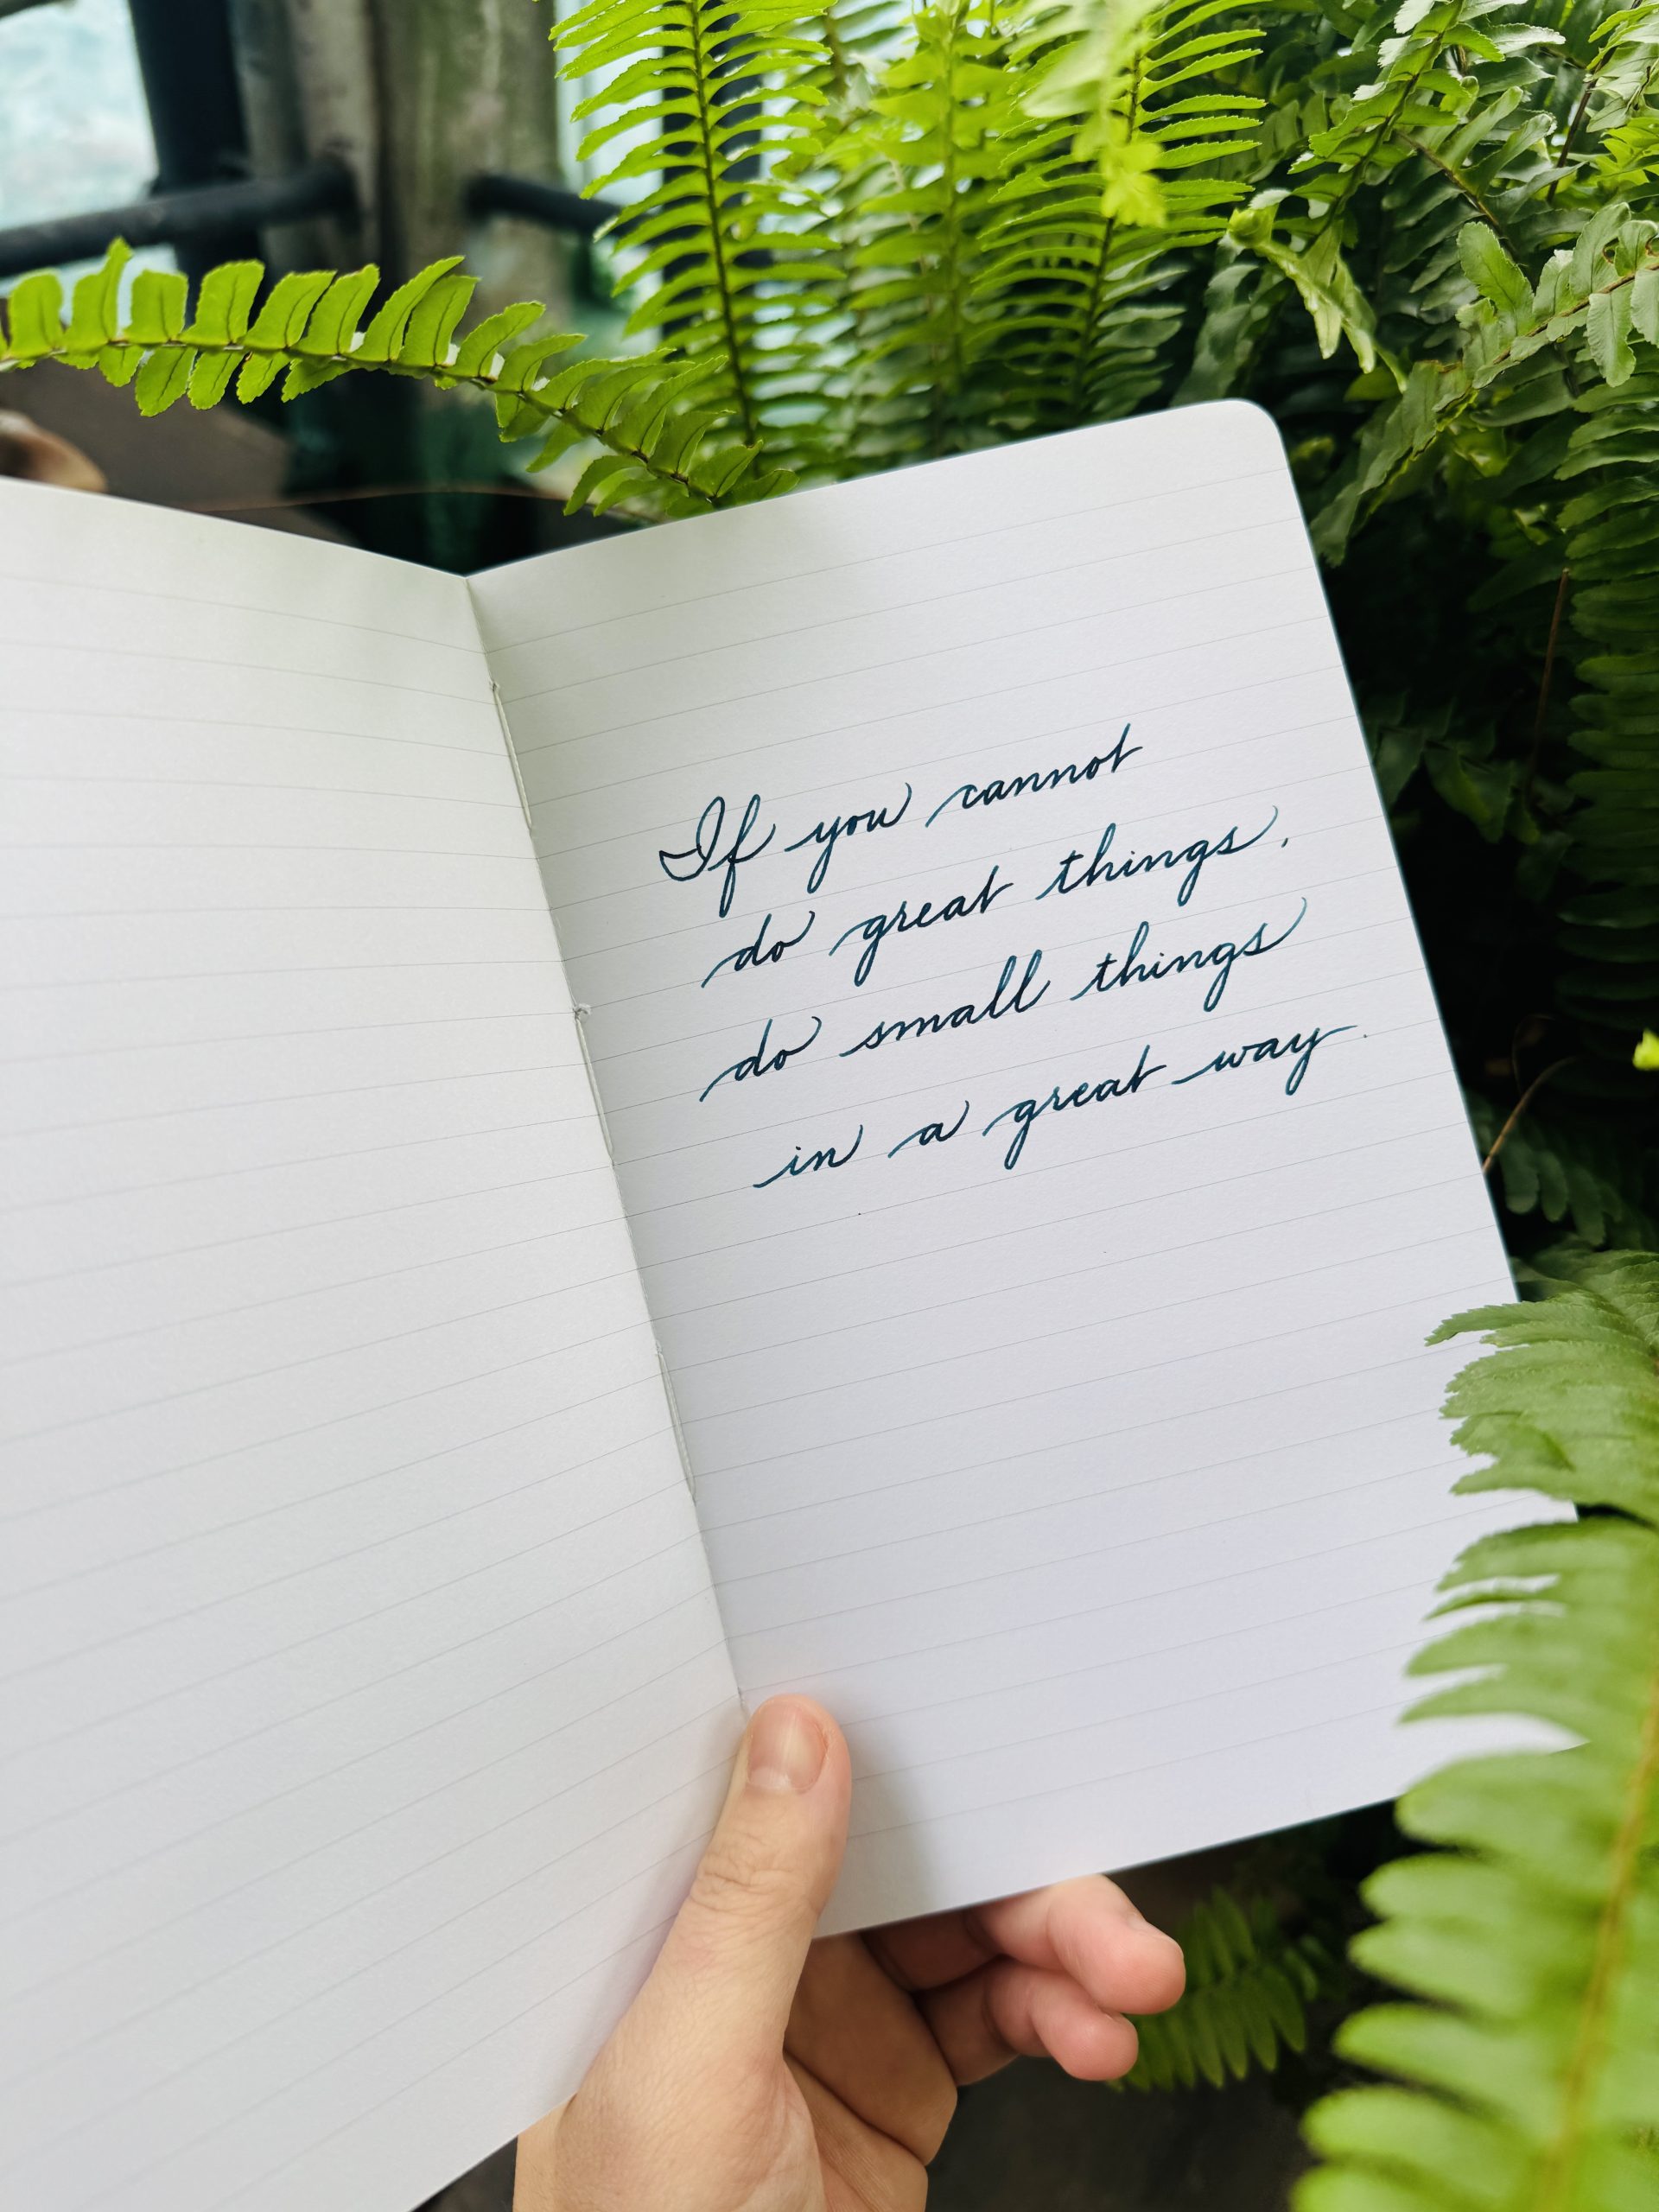 If you cannot
do great things,
do small things
in a great way.